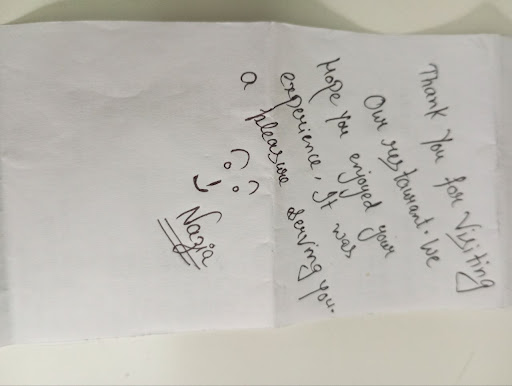 Thank you for visiting
Our restaurant. We
Hope you enjoyed your
experience, It was
a pleasure serving you.
Nazia